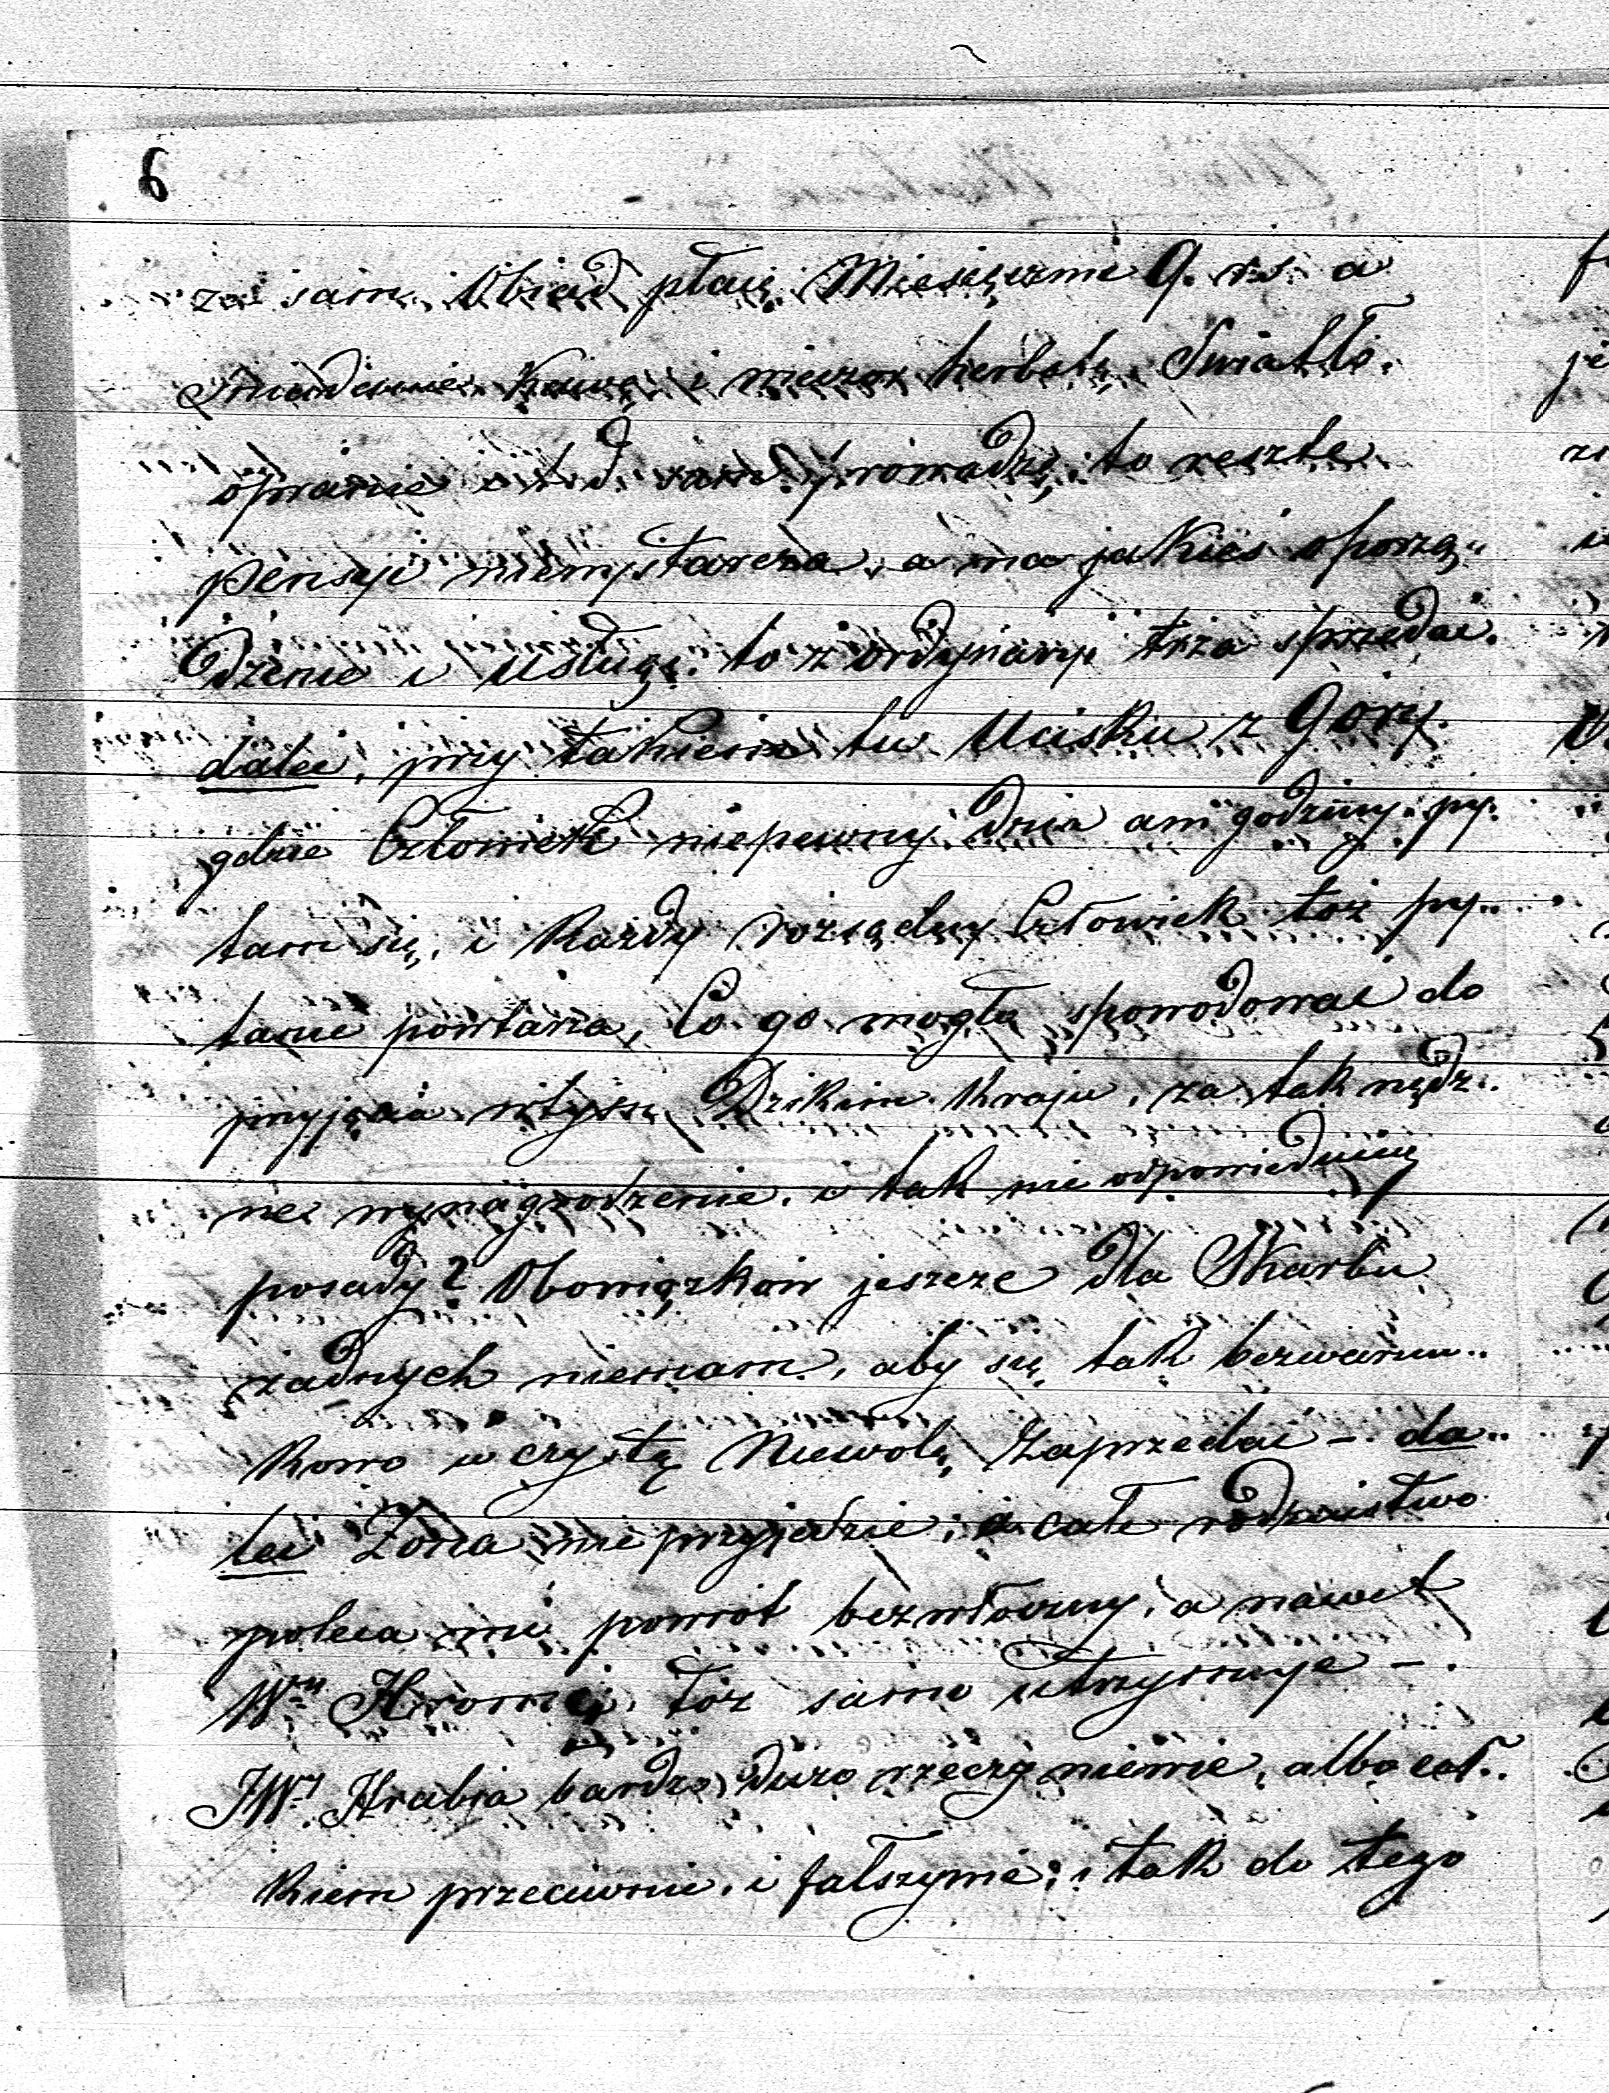 6
za sam Obiad płacę Miesięcznie 9. rs. a
Śniadanie Kawę i wieczor herbatę. Światło.
opranie i t d. sam prowadzę, to reszte
pensyi niewystarcza, a na jakieś oporzą„
dzenie i Usługę. to z ordynaryi trza sprzedać.
daléj, przy takiem tu Ucisku z Góry.
gdzie Człowiek niepewny dnia ani godziny. py„
tam się, i Każdy rozsądny Człowiek toż py„
tanie powtarza, Co go mogło spowodować do
przyjęcia w tym Dzikim Kraju, za tak nędz„
ne wynagrodzenie. i tak nie odpowiedniéj
posady? Obowiązków jeszcze dla Skarbu
żadnych niemam, aby się tak bezwarun„
kowo w czystą Niewolę zaprzedać – da„
léj Żona nie przyjedzie, a całe rodzeństwo
poleca mi powrót bezwłoczny, a nawet
Wny toż samo utrzymuje –.
JWny Hrabia bardzo dużo rzeczy niewie, albo cał„
kiem przeciwnie. i fałszywie; i tak do tego